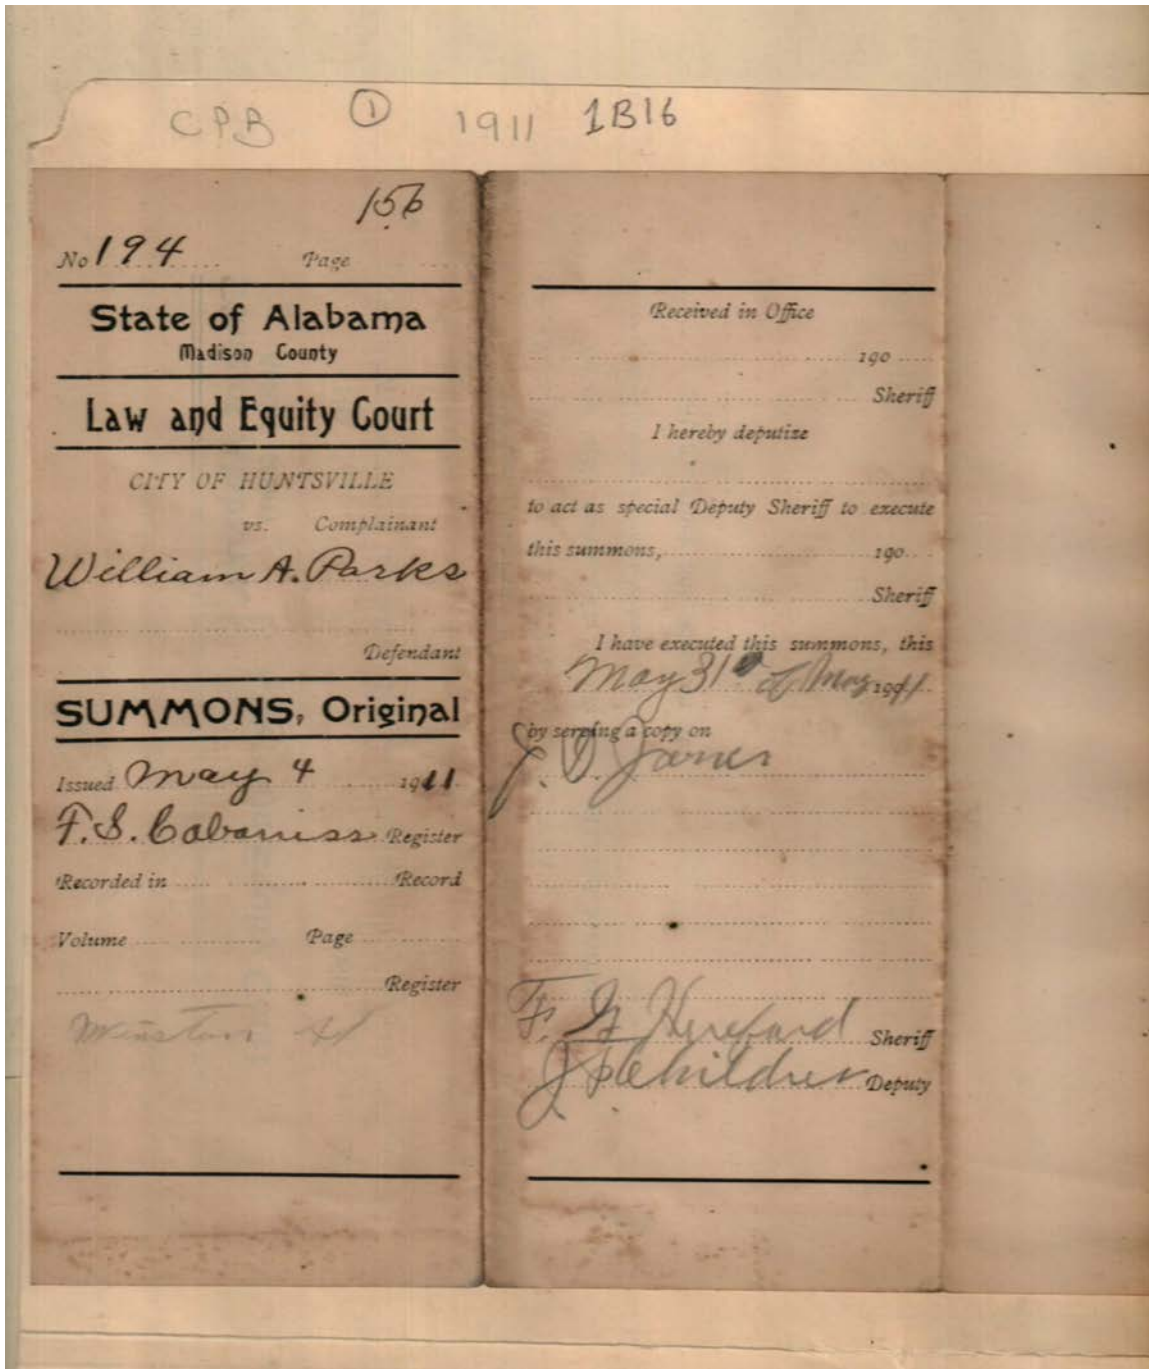 CPB 1 1911 1B16
156
No 194 Page
State of Alabama
Madison County
Law and Equity Court
CITY OF HUNTSVILLE
vs. Complainant
William A. Parks
Defendant
SUMMONS, Original
Issued May 4 1911
F. S. Cabaniss Register
Recorded in Record
Volume Page
Register
Winston
Received in Office
190
Sheriff
I hereby deputize
to act as special Deputy Sheriff to execute
this summons, 190
Sheriff
I have executed this summons, this
May 31 of May 1911
by serving a copy on
J. D. Janes
F. Hereford Sheriff
Childres Deputy